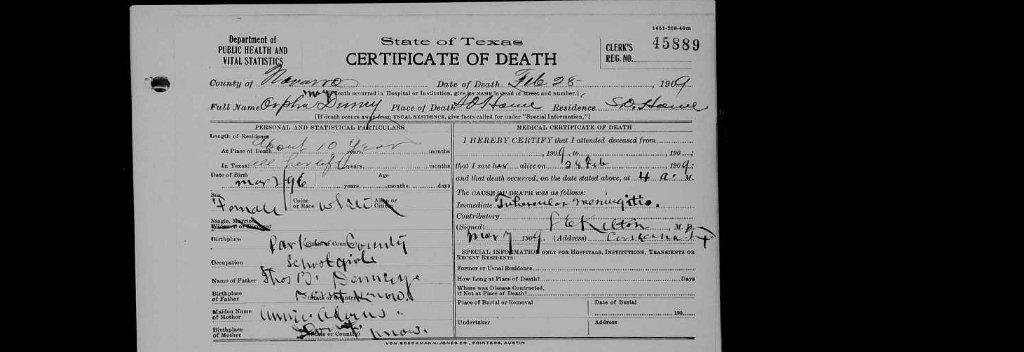 1451-208-40m
Department of
PUBLIC HEALTH AND
VITAL STATISTICS
State of Texas
CERTIFICATE OF DEATH
CLERK'S
REG. NO.
45889
County of Navarro Date of Death Feb 28 1909
(If death occurred in Hospital or Institution, give its NAME instead of street and number.)
Full Name Orpha Place of Death S.O. Home Residence S.O. Home
(If death occurs away from USUAL RESIDENCE, give facts called for under "Special Information.")
PERSONAL AND STATISTICAL PARTICULARS
Length of Residence
At Place of Death About 10 years months
In Texas all her life years months
Date of Birth Age
Mar 2/96 years months days
Sex Female Color or Race white Alien or Citizen
Single, Married
Widowed or Divorced
Birthplace Parker County
Occupation School girl
Name of Father Thos B.
Birthplace
of Father know
Maiden Name
of Mother Annie Adams
Birthplace
of Mother (State or Country) know.
MEDICAL CERTIFICATE OF DEATH
I HEREBY CERTIFY that I attended deceased from
, 190 , to 190 ,
that I saw her alive on 28 Feb 1909;
and that death occurred, on the date stated above, at 4 a. M.
The CAUSE OF DEATH was as follows:
Immediate Tubercular meningitis.
Contributory
(Signed) Kelton M. D.
Mar 7 1909 (Address) Corsicana Tx
SPECIAL INFORMATION ONLY FOR HOSPITALS, INSTITUTIONS, TRANSIENTS OR
RECENT RESIDENTS:
Former or Usual Residence
How Long at Place of Death? Days
Where was Disease Contracted,
if Not at Place of Death?
Place of Burial or Removal Date of Burial
190
Undertaker Address
VON BOECKMANN-JONES CO., PRINTERS, AUSTIN